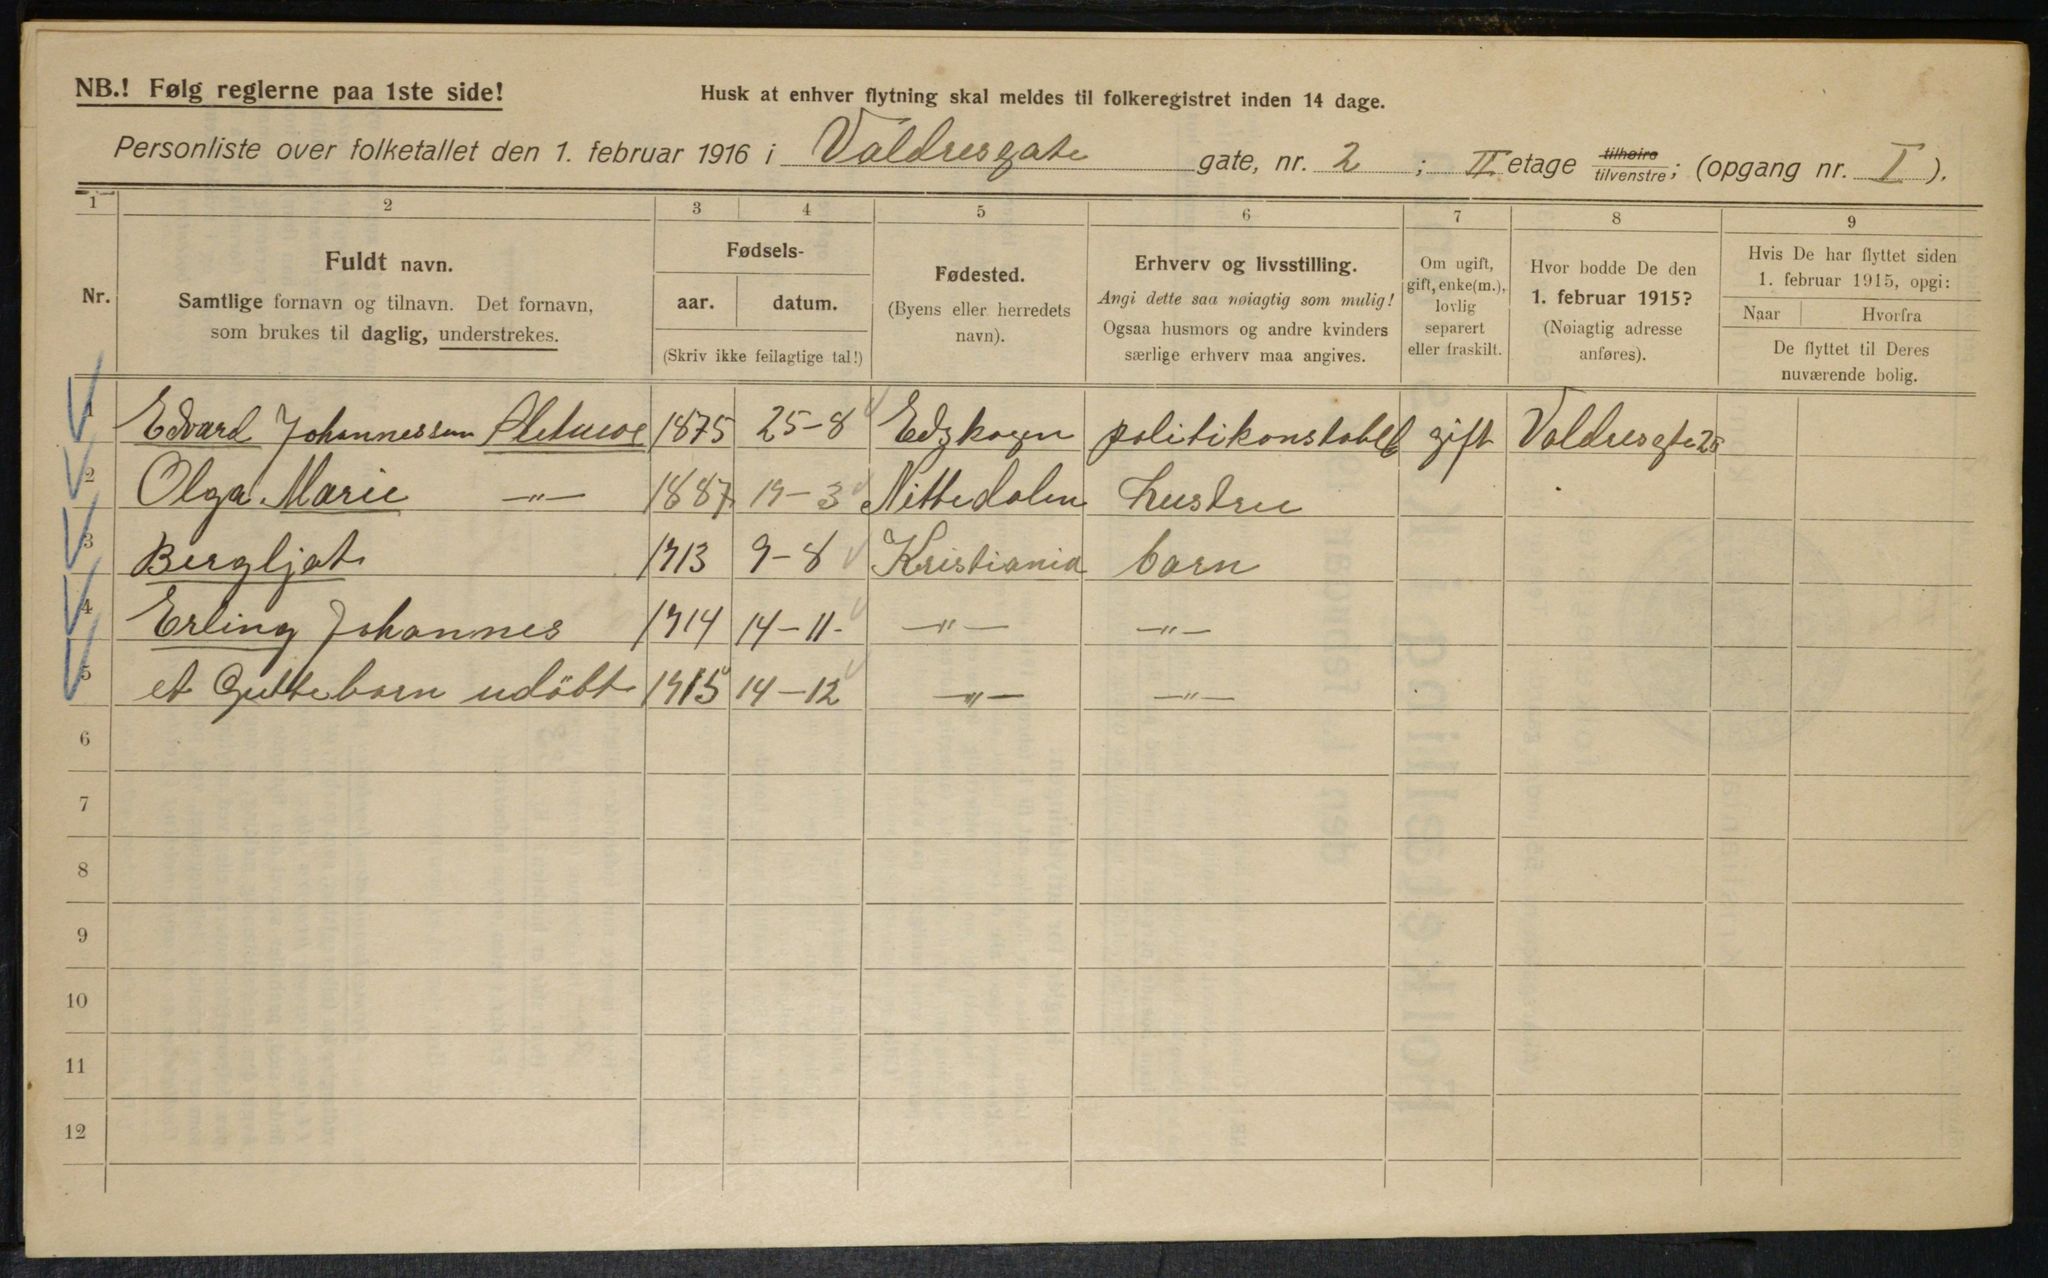 NB.! Følg reglerne paa 1ste side!
Husk at enhver flytning skal meldes til folkeregistret inden 14 dage.
Personliste over folketallet den 1. februar 1916 i Valdresgate gate, nr. 2 ; II etage tilhøire tilvenstre; (opgang nr. I ).
1 2 3 4 5 6 7 8 9
Nr.
Fuldt navn.
Samtlige fornavn og tilnavn. Det fornavn,
som brukes til daglig, understrekes.
Fødsels-
aar. datum.
(Skriv ikke feilagtige tal!)
Fødested.
(Byens eller herredets
navn).
Erhverv og livsstilling.
Angi dette saa nøiagtig som mulig!
Ogsaa husmors og andre kvinders
særlige erhverv maa angives.
Om ugift,
gift, enke(m.),
lovlig
separert
eller fraskilt.
Hvor bodde De den
1. februar 1915?
(Nøiagtig adresse
anføres).
Hvis De har flyttet siden
1. februar 1915, opgi:
Naar Hvorfra
De flyttet til Deres
nuværende bolig.
1 Edvard Johannessen 1875 25-8 Edskogen politikonstabel gift Valdresgte
2 Olga Marie —"— 1887 19-3 Nittedalen hustru
3 Bergljot 1913 9-8 Kristiania barn
4 Erling Johannes 1914 14-11- —"— —"—
5 et Guttebarn udöbt 1915 14-12 —"— —"—
6
7
8
9
10
11
12